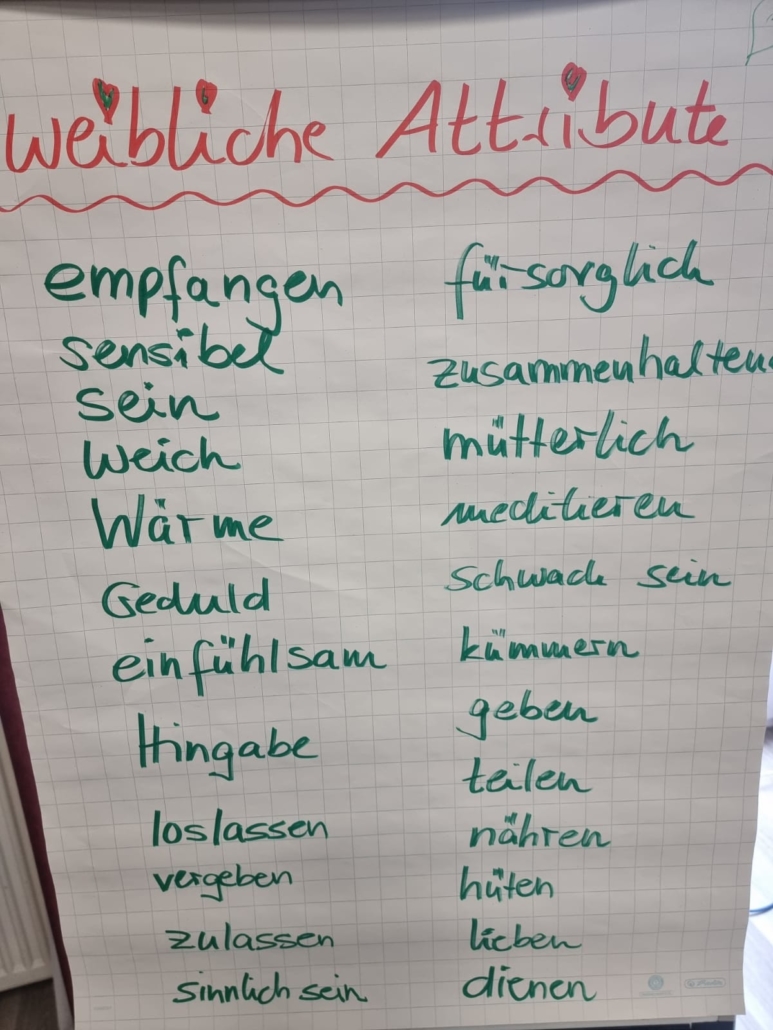 weibliche Attribute
empfangen
sensibel
sein
weich
Wärme
Geduld
einfühlsam
Hingabe
loslassen
vergeben
zulassen
sinnlich sein
fürsorglich
zusammenhalten
mütterlich
meditieren
schwach sein
kümmern
geben
teilen
nähren
hüten
lieben
dienen